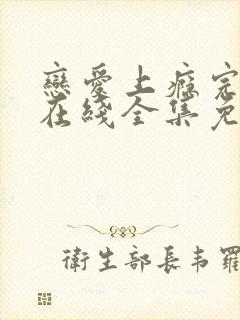 戀愛上癮完
在綫全集免
衛生部長韦羅